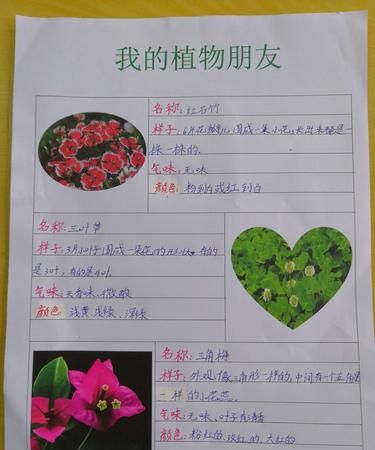 我的植物朋友
名称：红石竹
样子：6片花瓣儿围成一朵小花，长出来都是一
株一株的。
气味：无味
颜色：粉到白或红到白
名称：三叶草
样子：3片小叶子围成一朵花的形状。有的
是3叶，有的是4叶。
气味：无香味、微酸
颜色：浅黄、浅绿、深绿
名称：三角梅
样子：外观像三角形一样的，中间有一个五角星
一样的小花蕊。
气味：无味、叶子
颜色：粉红的、玫红的、大红的